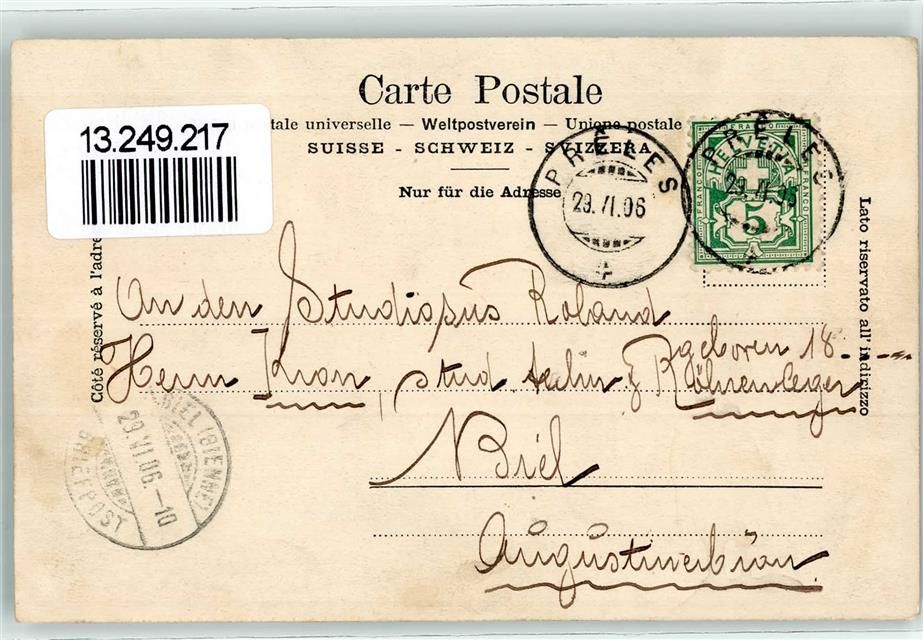 Carte Postale
tale universelle — Weltpostverein — Unione postale
SUISSE - SCHWEIZ - SVIZZERA
Nur für die Adresse
13.249.217
PRÊLES
29.VI.06
PRÊLES
29.VI.06
FRANCO
HELVETIA
FRANCO
5
Côté réservé à l'adre
Lato riservato all' indirizzo
An den Studiosus Roland
geboren 18
Herrn Kron, stud. techn. z Röhrenleger
Biel
BIEL (BIENNE)
29.VI.06.-10
BRIEFPOST